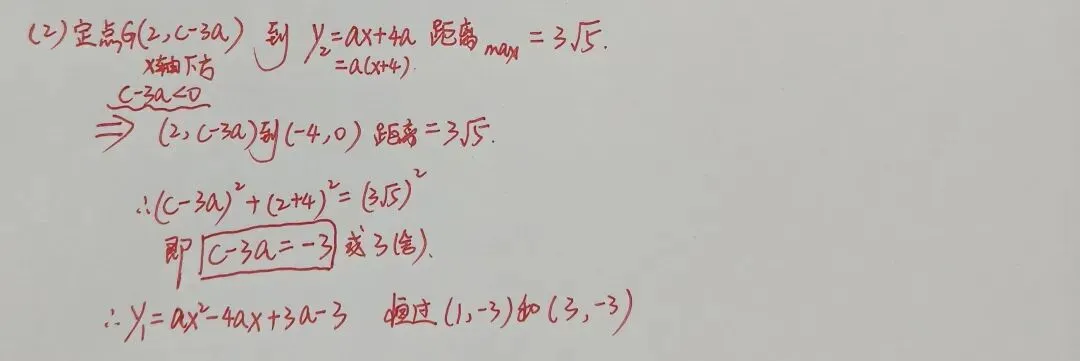 (2) 定点G(2, c-3a) 到 y₂=ax+4a 距离max = 3√5.
x轴下方 =a(x+4).
c-3a<0
⇒ (2, c-3a)到(-4,0) 距离=3√5.
∴(c-3a)²+(2+4)²=(3√5)²
即 c-3a=-3 或 3(舍).
∴y₁=ax²-4ax+3a-3 恒过(1,-3)和(3,-3)